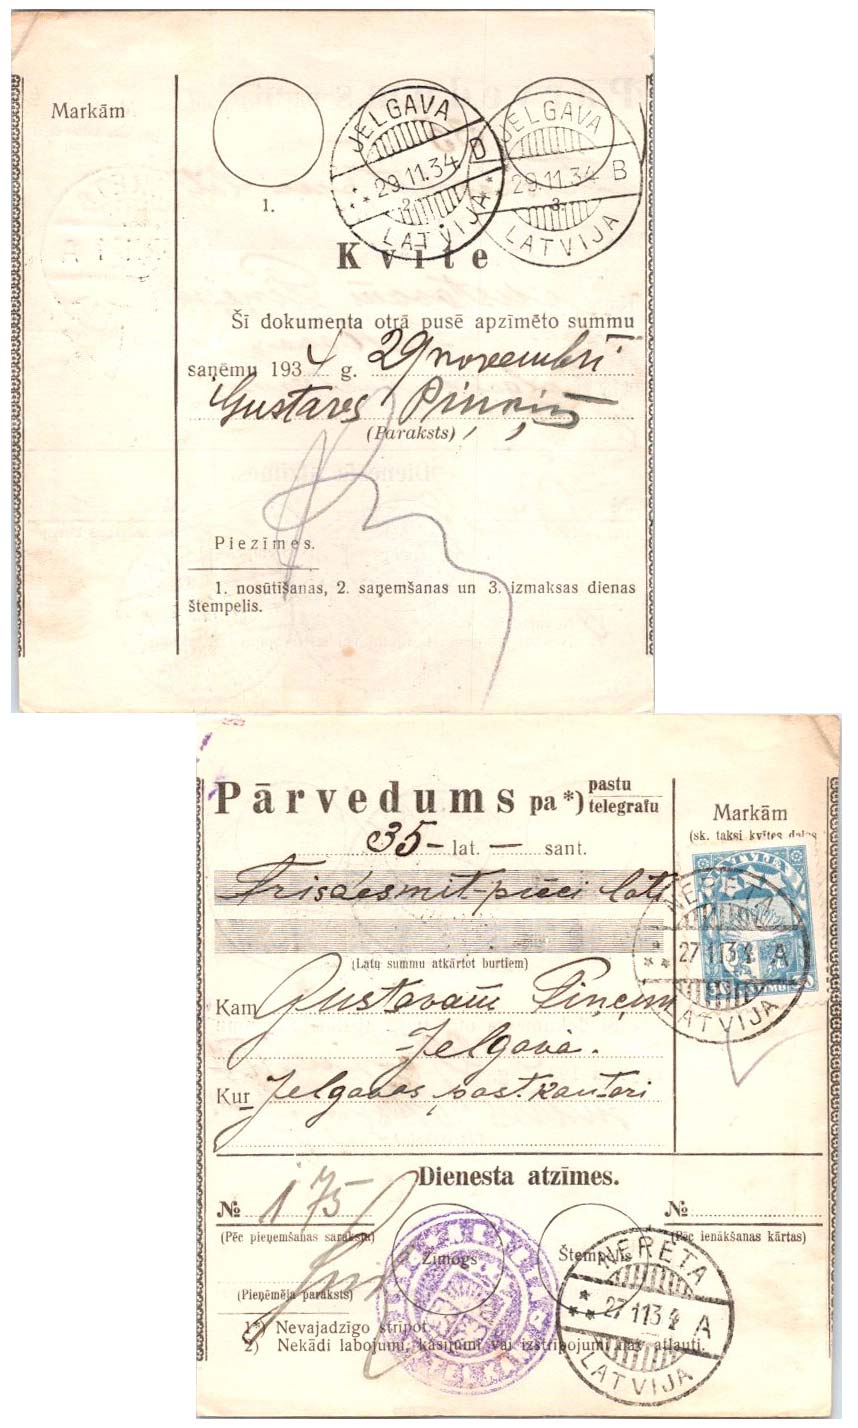 Markām
JELGAVA
29.11.34 D
LATVIJA
JELGAVA
29.11.34 B
LATVIJA
1.
2.
3.
Kvite
Šī dokumenta otrā pusē apzīmēto summu
saņēmu 1934 g. 29 novembrī
Gustavs Piņņiņ
(Paraksts)
Piezīmes.
1. nosūtīšanas, 2. saņemšanas un 3. izmaksas dienas
štempelis.
Pārvedums pa*) pastu
telegrafu
Markām
(sk. taksi kvītes
35 - lat. — sant.
Trisdesmit pieci lati
(Latu summu atkārtot burtiem)
NERETA
27 1134 A
LATVIJA
Kam Gustavam
Jelgavā.
Kur Jelgavas past. kantori
Dienesta atzīmes.
№ 175
№
(Pēc pieņemšanas saraksta)
(Pēc ienākšanas kārtas)
Zīmogs
Štempelis
(Pieņēmēja paraksts)
NERETA
27 1134 A
LATVIJA
1*) Nevajadzīgo strīpot.
2) Nekādi labojumi, kasijumi vai izstrīpojumi nav atļauti.